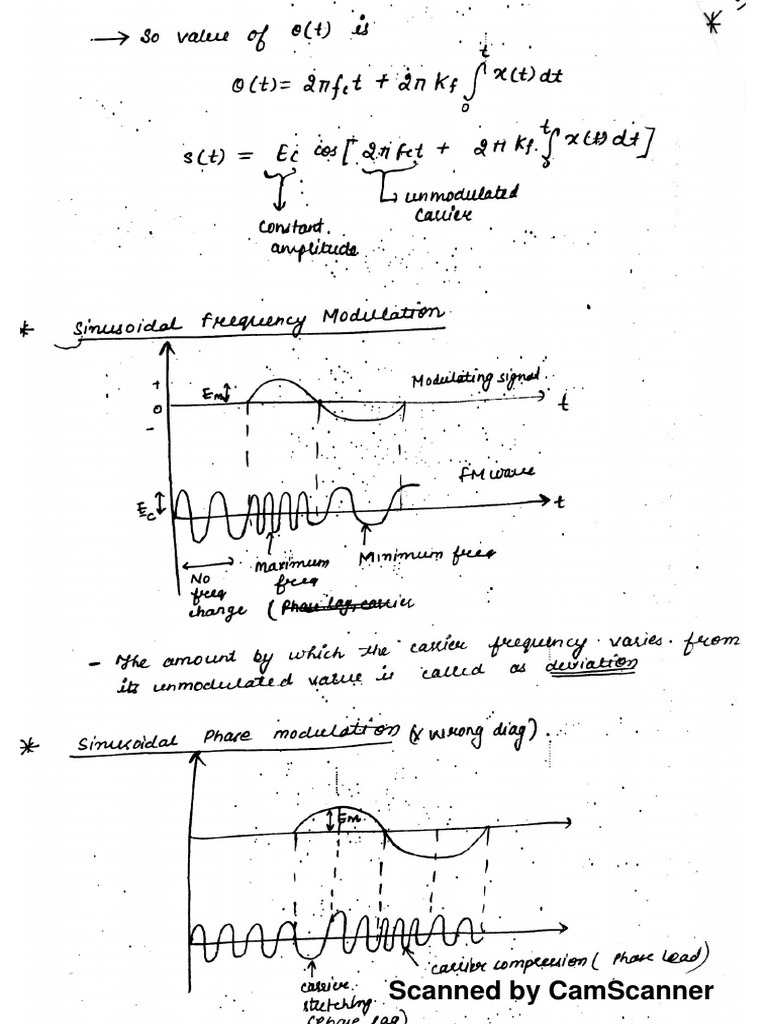 *
→ So value of θ(t) is
θ(t) = 2πfct + 2π Kf ∫0t x(t) dt
s(t) = Ec cos[2πfct + 2π Kf. ∫0t x(t) dt]
constant. amplitude
unmodulated carrier
* Sinusoidal Frequency Modulation
+
Em
Modulating signal
0
t
-
FM wave
Ec
t
No freq change
maximum freq
Minimum freq
(Phase lag, carrier
- The amount by which the carrier frequency varies from
its unmodulated value is called as deviation
* Sinusoidal Phase modulation (x wrong diag).
Em
carrier compression (Phase lead)
carrier stretching (Phase lag)
Scanned by CamScanner